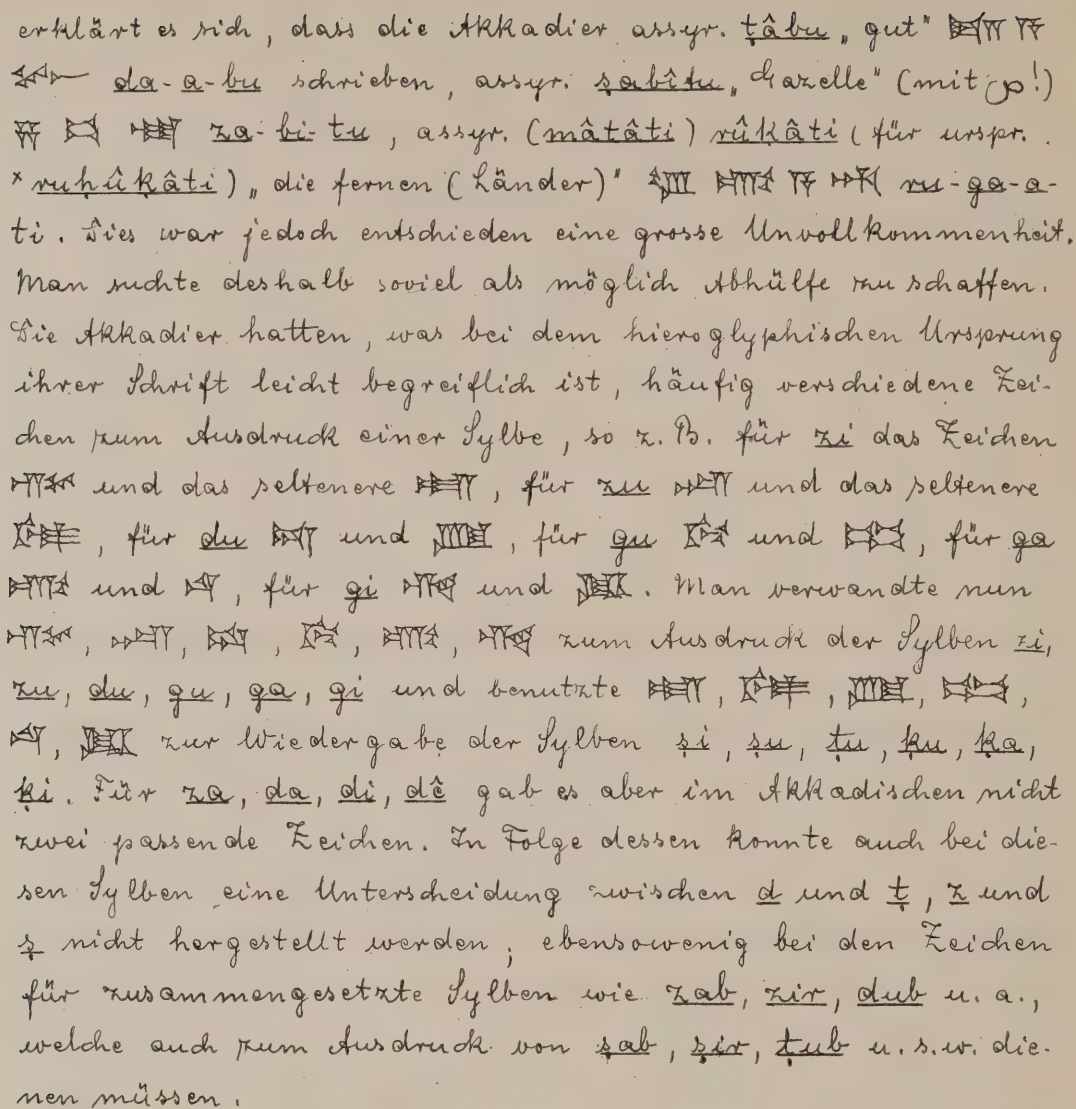 erklärt es sich, dass die Akkadier assyr. ṭâbu „gut" 𒁕 𒀀
𒁍 da-a-bu schrieben, assyr. ṣabîtu „Gazelle" (mit ص!)
𒍝 𒁉 𒌅 za-bi-tu, assyr. (mâtâti) rûḳâti (für urspr.
*ruḥûḳâti) „die fernen (Länder)" 𒊒 𒂵 𒀀 𒋾 ru-ga-a-
ti. Dies war jedoch entschieden eine grosse Unvollkommenheit.
Man suchte deshalb soviel als möglich Abhülfe zu schaffen.
Die Akkadier hatten, was bei dem hieroglyphischen Ursprung
ihrer Schrift leicht begreiflich ist, häufig verschiedene Zei-
chen zum Ausdruck einer Sylbe, so z. B. für zi das Zeichen
𒍣 und das seltenere 𒍢, für zu 𒍪 und das seltenere
𒍮, für du 𒁺 und 𒂅, für gu 𒄖 und 𒄣, für ga
𒂵 und 𒋡, für gi 𒄀 und 𒆥. Man verwandte nun
𒍣, 𒍪, 𒁺, 𒄖, 𒂵, 𒄀 zum Ausdruck der Sylben zi,
zu, du, gu, ga, gi und benutzte 𒍢, 𒍮, 𒂅, 𒄣,
𒋡, 𒆥 zur Wiedergabe der Sylben ṣi, ṣu, ṭu, ḳu, ḳa,
ḳi. Für za, da, di, dê gab es aber im Akkadischen nicht
zwei passende Zeichen. In Folge dessen konnte auch bei die-
sen Sylben eine Unterscheidung zwischen d und ṭ, z und
ṣ nicht hergestellt werden; ebensowenig bei den Zeichen
für zusammengesetzte Sylben wie zab, zir, dub u. a.,
welche auch zum Ausdruck von ṣab, ṣir, ṭub u. s. w. die-
nen müssen.